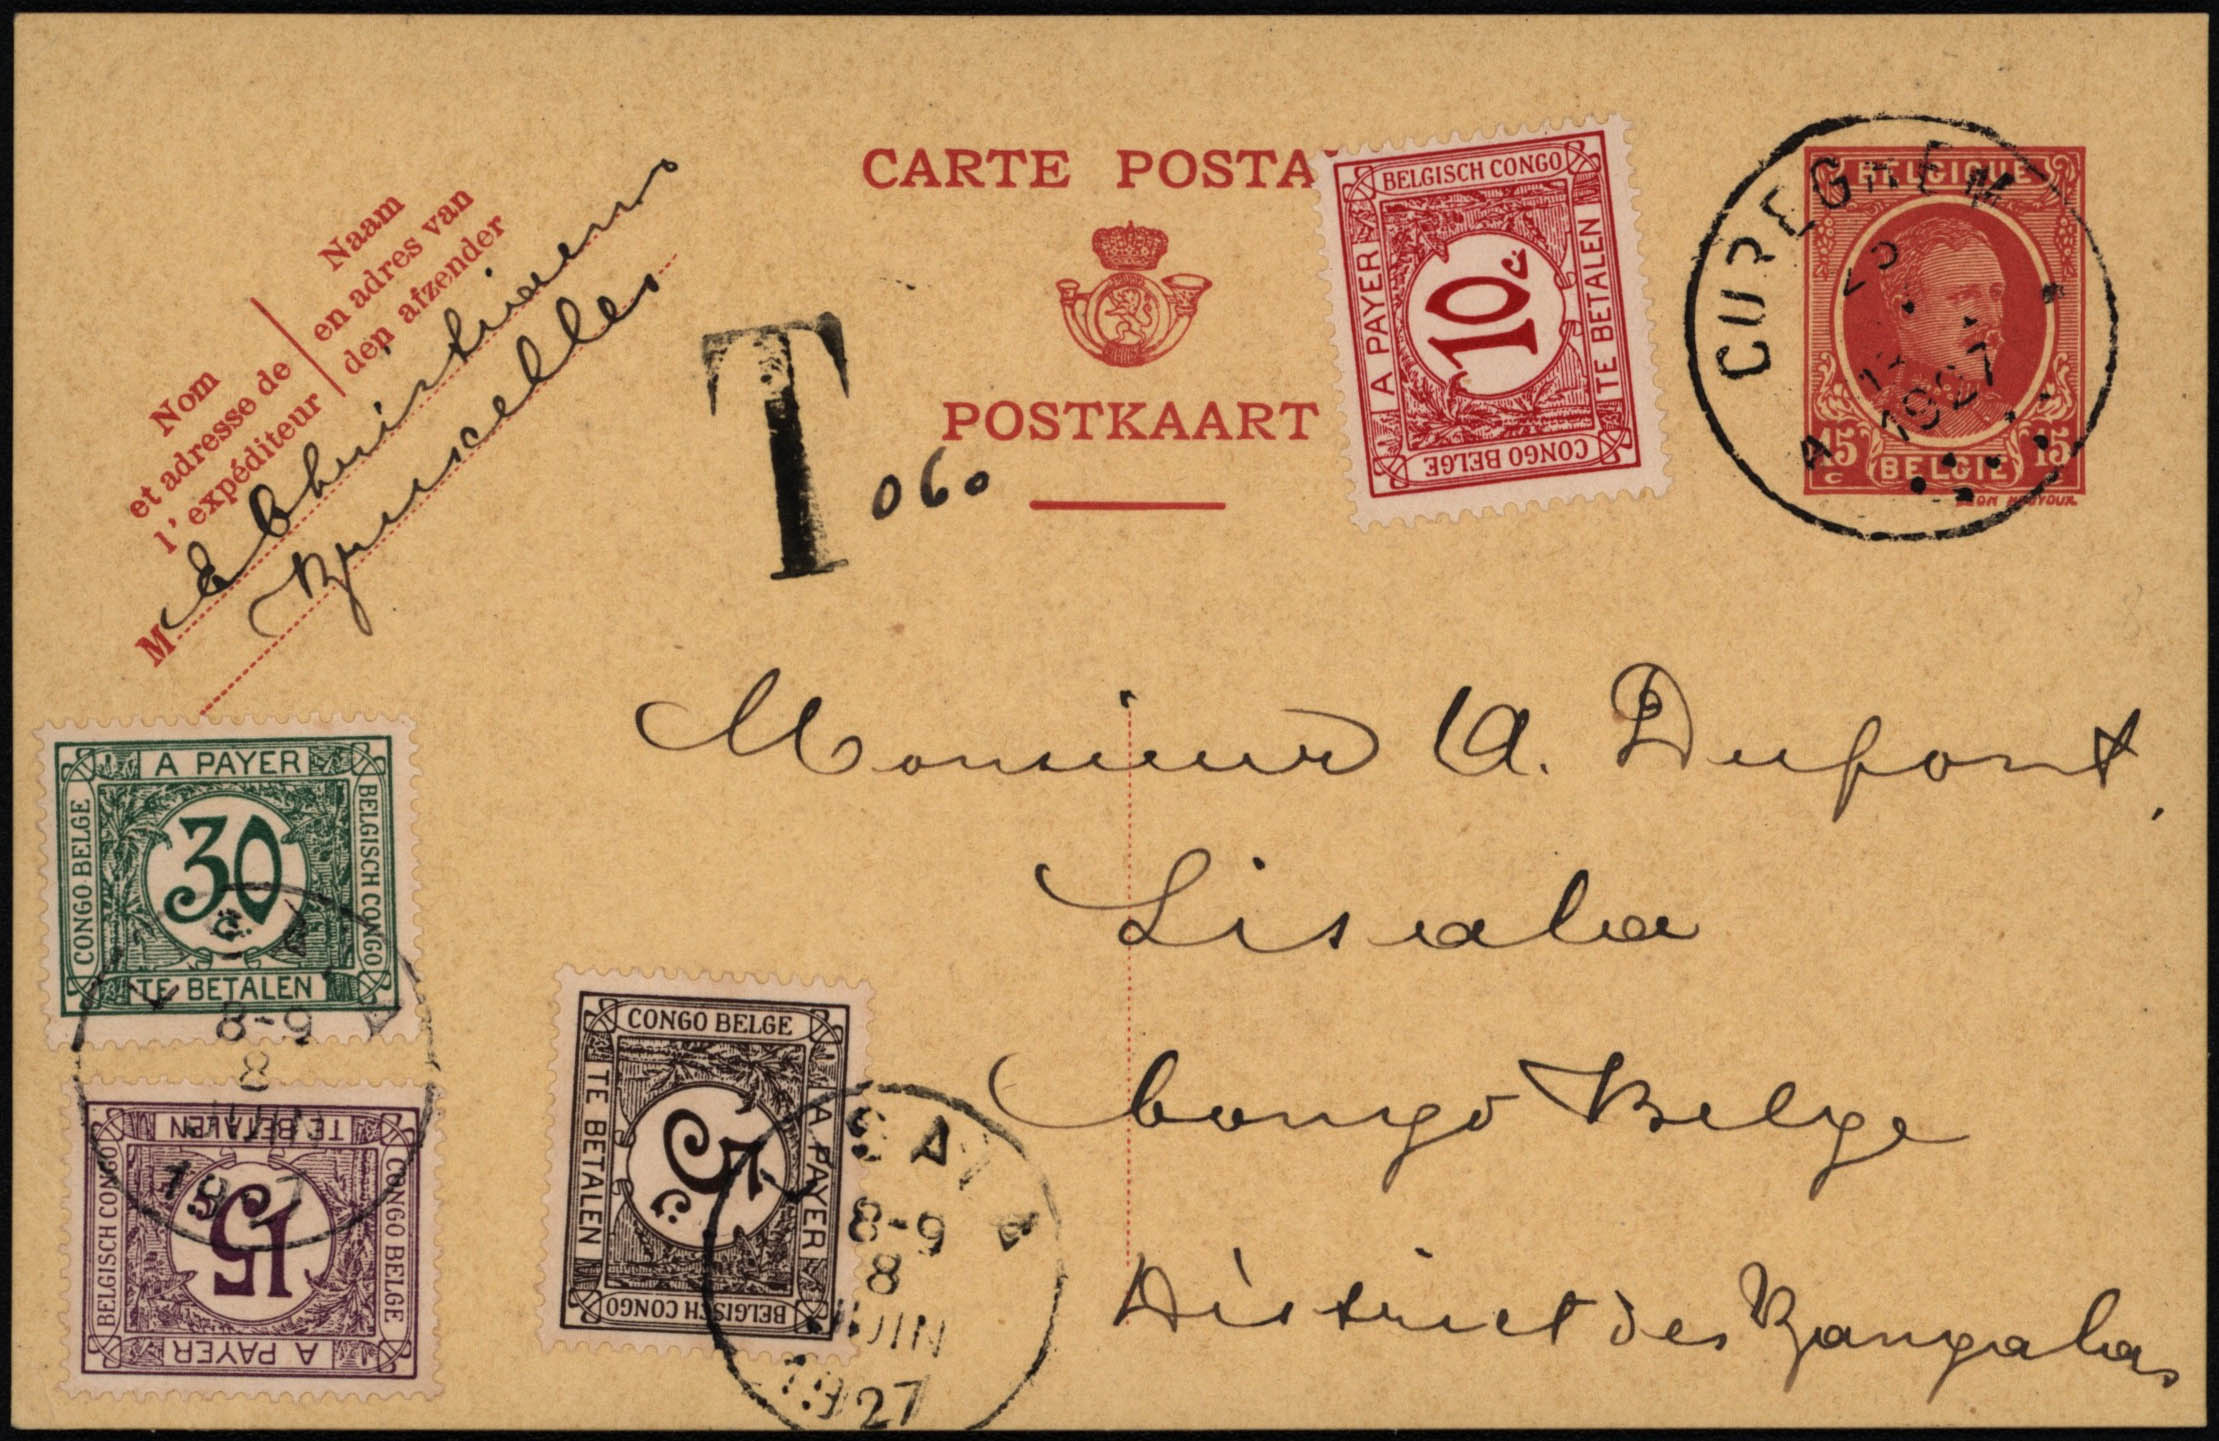 CARTE POSTA
POSTKAART
Nom
et adresse de
l'expéditeur
Naam
en adres van
den afzender
M
E Christiaens
Bruxelles
T
060
BELGISCH CONGO
A PAYER
10 c
TE BETALEN
CONGO BELGE
CUREGHEM
A
1927
BELGIQUE
15 15
BELGIE
C C
Monsieur A. Dupont,
Lisala
Congo Belge
District des Bangalas
A PAYER
CONGO BELGE
30
c.
BELGISCH CONGO
TE BETALEN
8-9
8
JUIN
1927
TE BETALEN
BELGISCH CONGO
15
CONGO BELGE
A PAYER
CONGO BELGE
TE BETALEN
5 c
A PAYER
BELGISCH CONGO
8-9
8
JUIN
1927